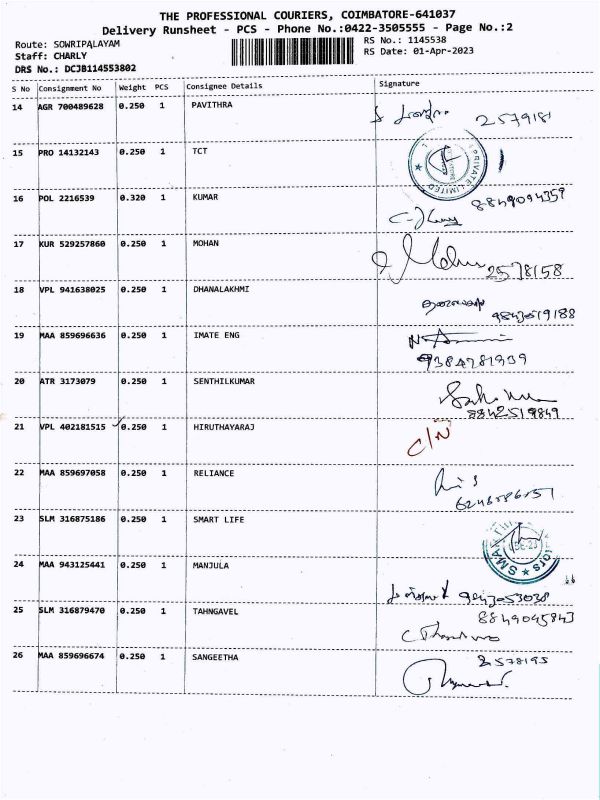 THE PROFESSIONAL COURIERS, COIMBATORE-641037
Delivery Runsheet - PCS - Phone No.:0422-3505555 - Page No.:2
Route: SOWRIPALAYAM
RS No.: 1145538
Staff: CHARLY
RS Date: 01-Apr-2023
DRS No.: DCJB114553802
S No Consignment No Weight PCS Consignee Details Signature
14 AGR 700489628 0.250 1 PAVITHRA
2579181
15 PRO 14132143 0.250 1 TCT
PRIVATE LIMITED
16 POL 2216539 0.320 1 KUMAR
8849094359
17 KUR 529257860 0.250 1 MOHAN
2578158
18 VPL 941638025 0.250 1 DHANALAKHMI
19 MAA 859696636 0.250 1 IMATE ENG
9384781939
20 ATR 3173079 0.250 1 SENTHILKUMAR
8842519849
21 VPL 402181515 0.250 1 HIRUTHAYARAJ
C/N
22 MAA 859697058 0.250 1 RELIANCE
23 SLM 316875186 0.250 1 SMART LIFE
24 MAA 943125441 0.250 1 MANJULA
25 SLM 316879470 0.250 1 TAHNGAVEL
8849045843
26 MAA 859696674 0.250 1 SANGEETHA
2578195